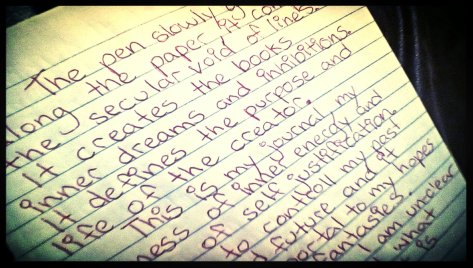 The pen slowly g
along the paper. It con
the secular void of lines.
It creates the books
inner dreams and inhibitions.
It defines the purpose and
life of the creator.
This is my journal, my
ness of inner energy and
of self justification.
to controll my past
d future and of
portal to my hopes
fantasies.
am unclear
what
is